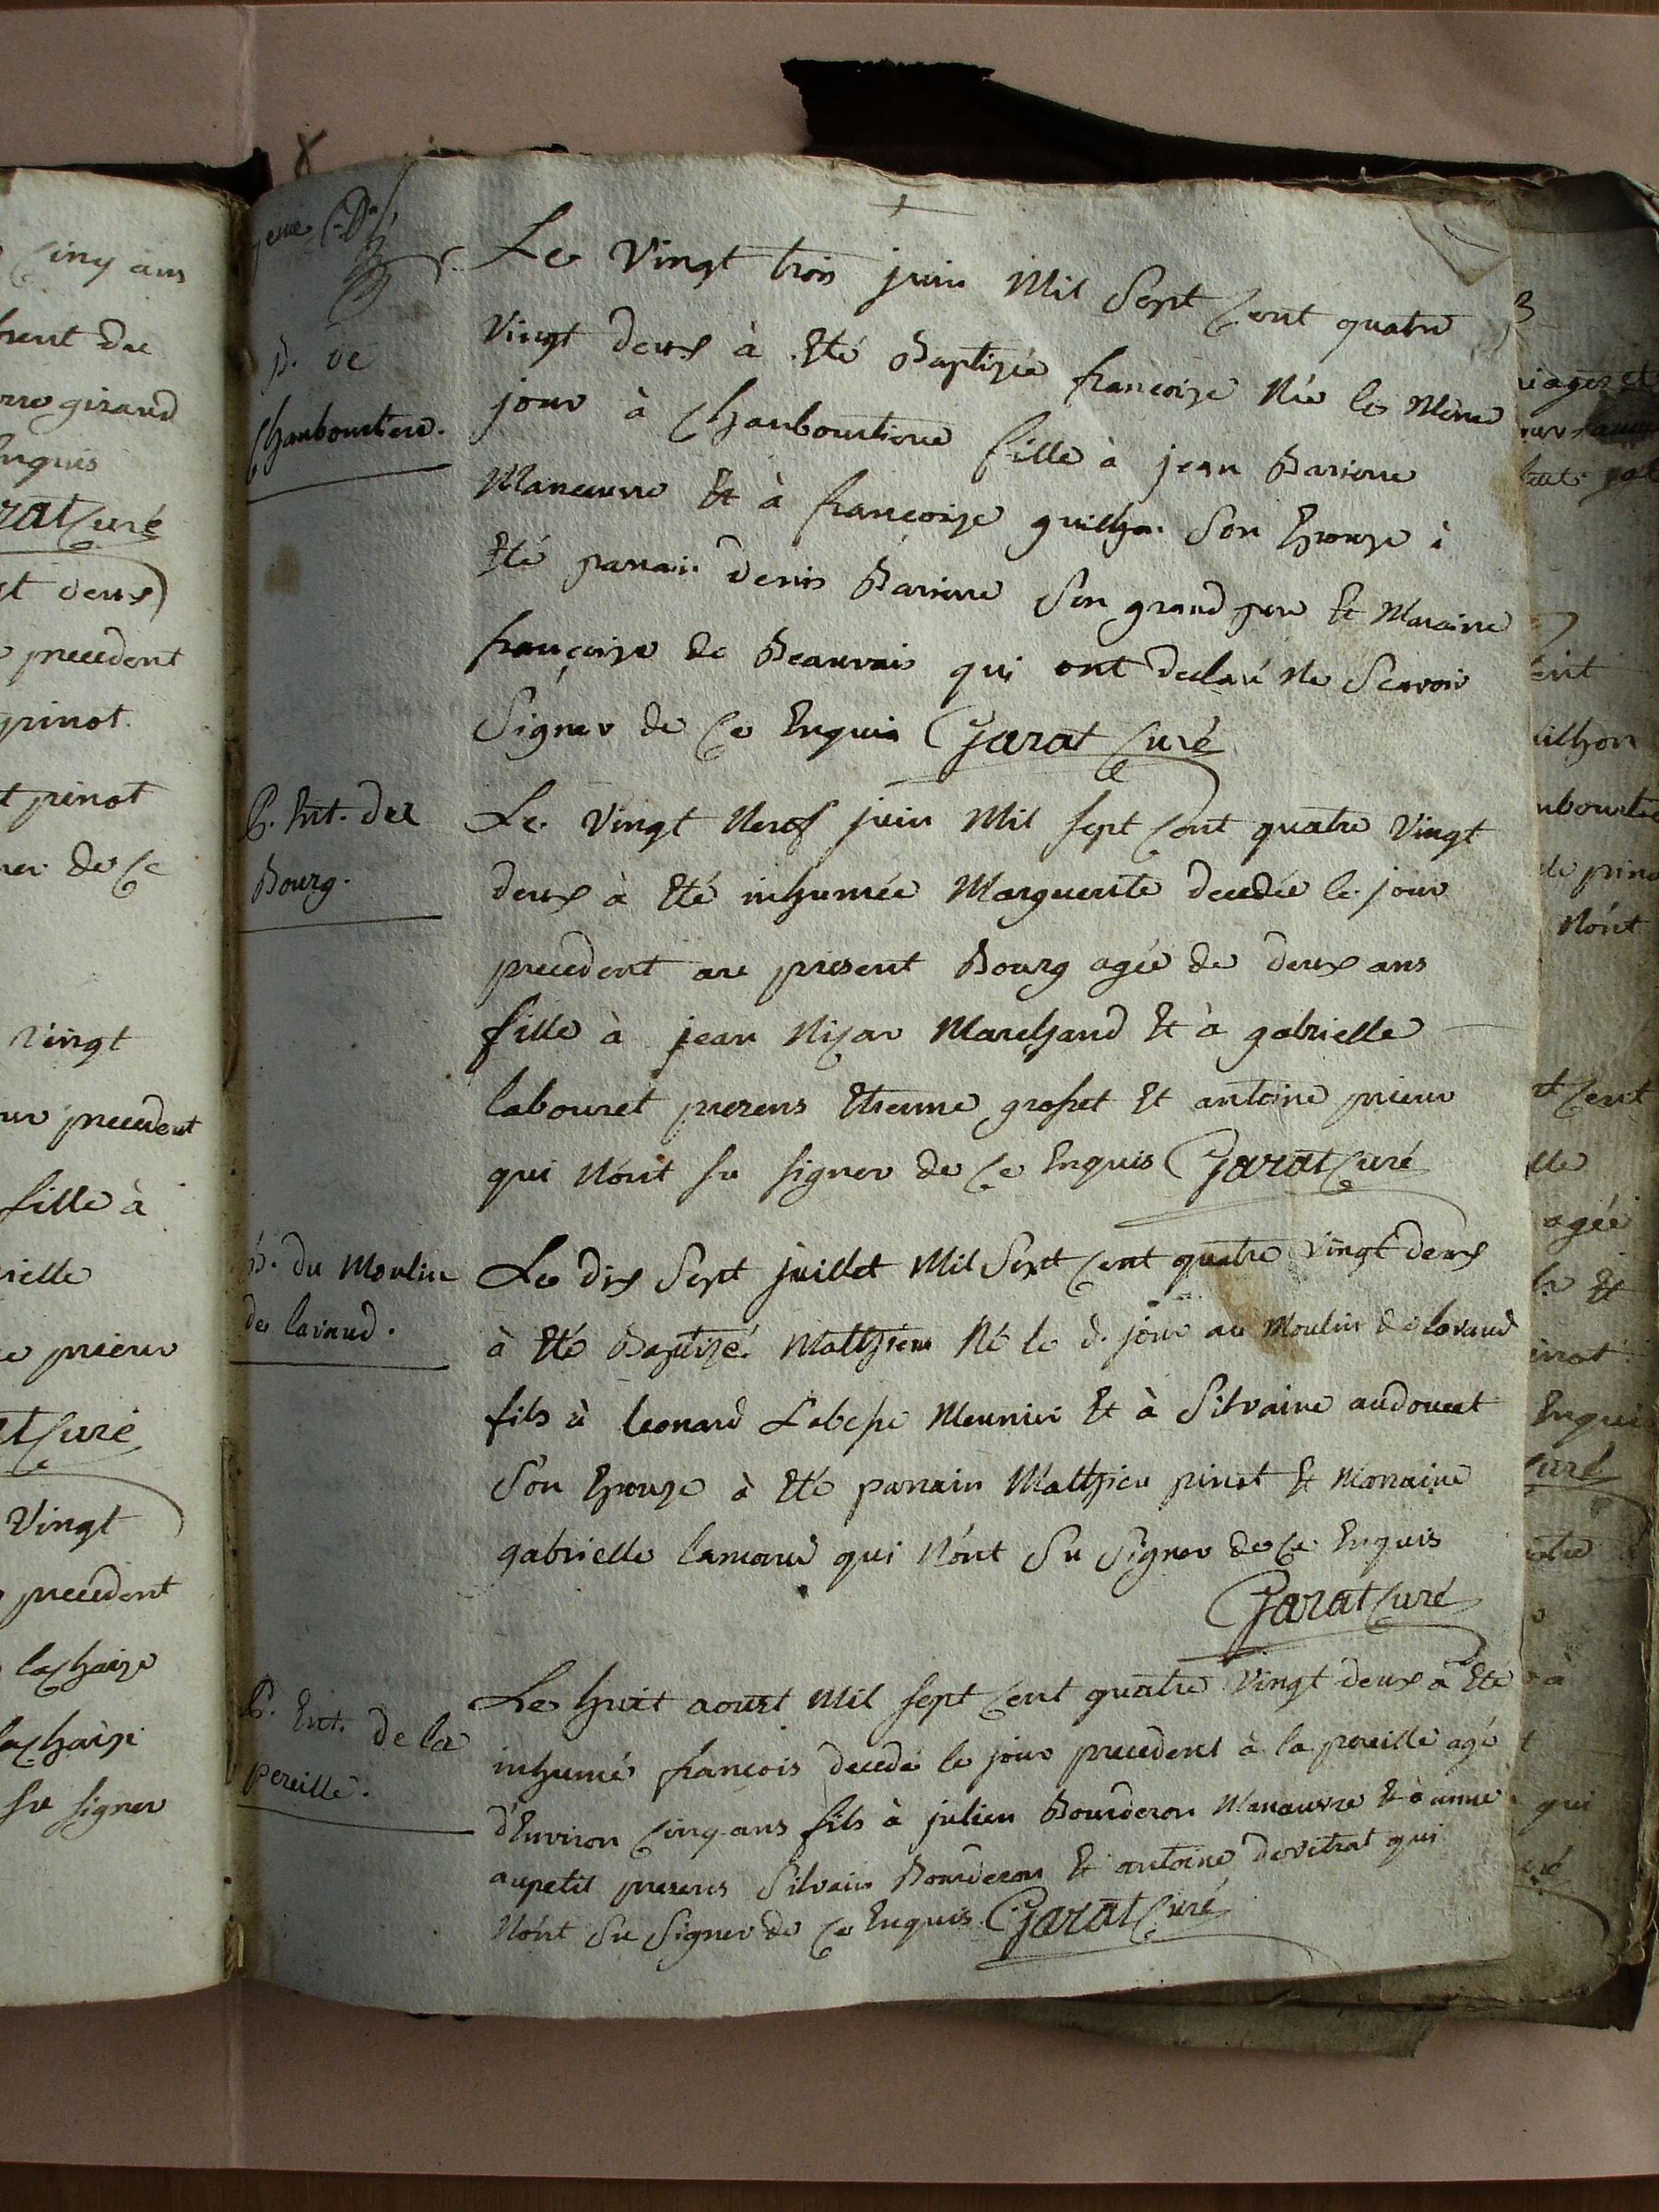 Cinq ans
girand
Enquis
Curé
deux
precedent
pinot
pinot
de Ce
Vingt
precedent
fille à
prieur
Curé
Vingt
precedent
lachaize
lachaize
su signer
B. de
Chaubourtiere.
Le Vingt trois juin Mil Sept Cent quatre
Vingt deux à Eté Baptizée francoize Née le Même
jour à Chaubourtiere fille à jean Bariere
Manœuvre Et à françoize guilhon Son Epouze à
Eté parrain denis Barriere Son grand pere Et Maraine
françoize de Beauvais qui ont declaré Ne Scavoir
Signer de Ce Enquis Garat Curé
P. Ent. du
Bourg.
Le Vingt Neuf juin Mil sept Cent quatre Vingt
deux à Eté inhumée Marguerite decedée le jour
precedent au present Bourg agée de deux ans
fille à jean Nizar Marchand Et à gabrielle
labouret prezens Etienne grosset Et antoine prieur
qui N'ont su signer de Ce Enquis Garat Curé
B. du Moulin
de lavaud.
Le dix Sept juillet Mil Sept Cent quatre Vingt deux
à Eté Baptizé Matthieu Né le d. jour au Moulin de lavaud
fils à leonard Labesse Meunier Et à Silvaine audouct
Son Epouze à Eté parrain Matthieu pinot Et Marraine
gabrielle lamaud qui N'ont Su Signer de Ce Enquis
Garat Curé
P. Ent. de la
pereille.
Le huit aoust Mil sept Cent quatre Vingt deux à Eté
inhumé francois decedé le jour precedent à la pereille agé
d'Environ Cinq ans fils à julien Bourderon Manœuvre Et à anne
aupetit prezens Silvain Bourderon Et antoine devitrat qui
N'ont Su Signer de Ce Enquis Garat Curé
N'ont
Cent
agée
Et
Enquis
Curé
à
qui